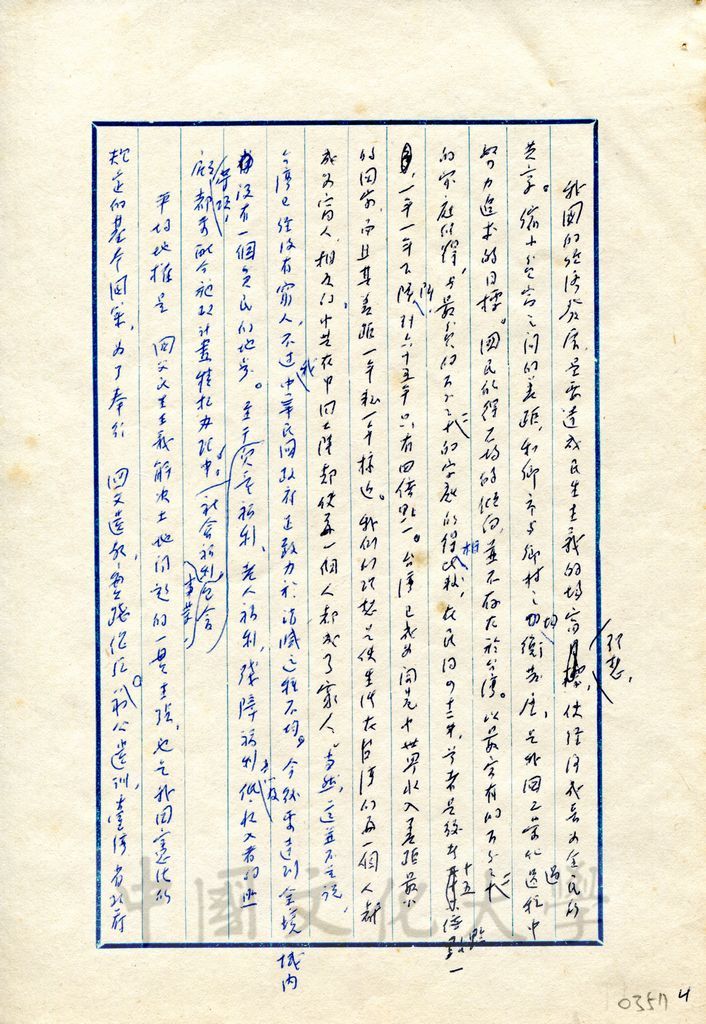 我國的經濟發展是要達成民生主義的均富理想,使經濟成長為全民所
共享。縮小貧富之間的差距,和鄉市與鄉村之均衡發展,是我國工業化過程中
努力追求的目標。國民所得不均的傾向,並不存在於台灣。以最富有的百分之二十
的家庭所得,與最貧的百分之二十的家庭所得相比較,在民國四十二年,前者是後者十五倍
一年一年下降,到六十五年只有四倍點一。台灣已成為世界收入差距最小
的國家,而且其差距一年和一年接近。我們的理想是使生活在台灣的每一個人都
成為富人,相反的中共在中國大陸却使每一個人都成了窮人。當然,這並不是說,
台灣已經沒有窮人,不過中華民國政府正致力於消滅這種不均。今後要達到全境域內
沒有一個貧民的地步。至于兒童福利、老人福利、殘障福利低收入者的照
顧都要配合施政計畫積極辦理中。社會福利包含
平均地權是 國父民生主義解決土地問題的一貫主張,也是我國憲法所
規定的基本國策,為了奉行 國父遺教,實踐 蔣公遺訓,臺灣省政府
中國文化大學
0357 4